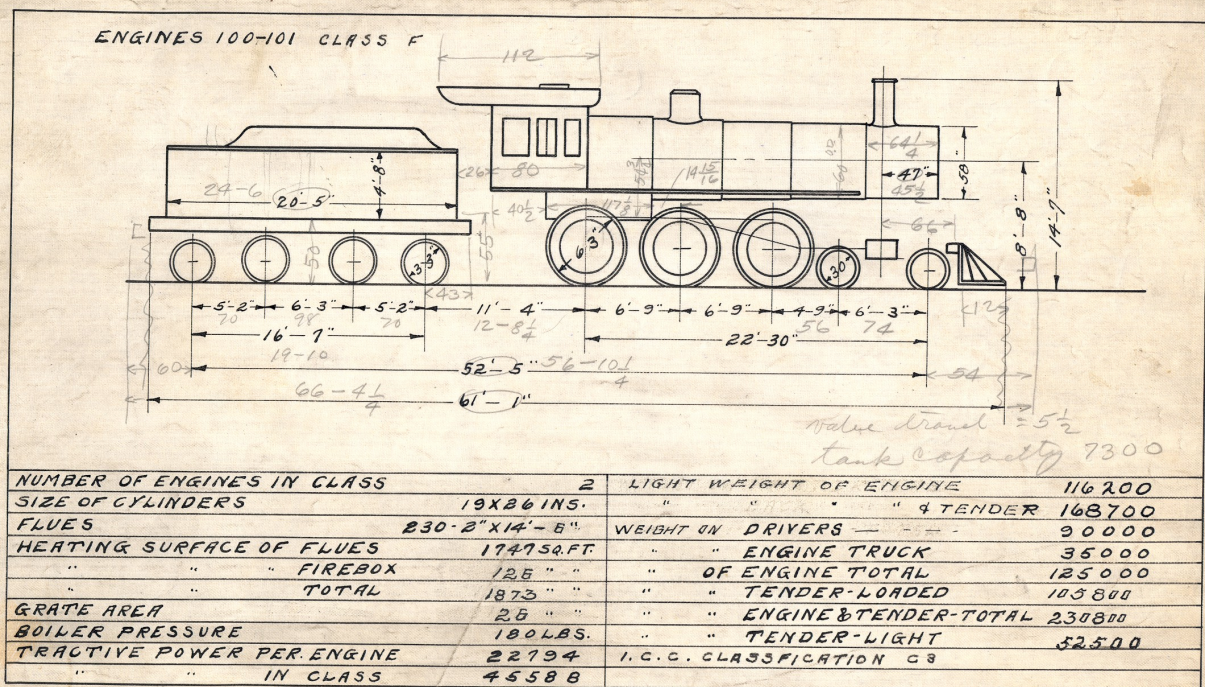 ENGINES 100-101 CLASS F
112
64 1/4
60
14 15/16
54 3/4
26 80
47"
45 1/2
58"
4'-8"
24-6 20'-5"
40 1/2 117 1/8
66
8'-8"
14'-7"
50
55
6'-3"
3-3"
30"
43
12
5-2" 6'-3" 5-2" 11'-4" 6'-9" 6'-9" 4-9" 6'-3"
70 98 70 12-8 1/4 56 74
16'-7" 22'-30"
19-10
60 52'-5" 56-10 1/4 54
66-4 1/4
61'-1"
valve travel = 5 1/2
tank capacity 7300
NUMBER OF ENGINES IN CLASS 2
SIZE OF CYLINDERS 19X26 INS.
FLUES 230-2"X14'-6"
HEATING SURFACE OF FLUES 1747 SQ.FT.
" " " FIREBOX 126 " "
" " TOTAL 1873 " "
GRATE AREA 26 " "
BOILER PRESSURE 180 LBS.
TRACTIVE POWER PER. ENGINE 22794
" " IN CLASS 45588
LIGHT WEIGHT OF ENGINE 116200
" " " " & TENDER 168700
WEIGHT ON DRIVERS 90000
" " ENGINE TRUCK 35000
" OF ENGINE TOTAL 125000
" " TENDER-LOADED 105800
" " ENGINE & TENDER-TOTAL 230800
" " TENDER-LIGHT 52500
I.C.C. CLASSFICATION C3